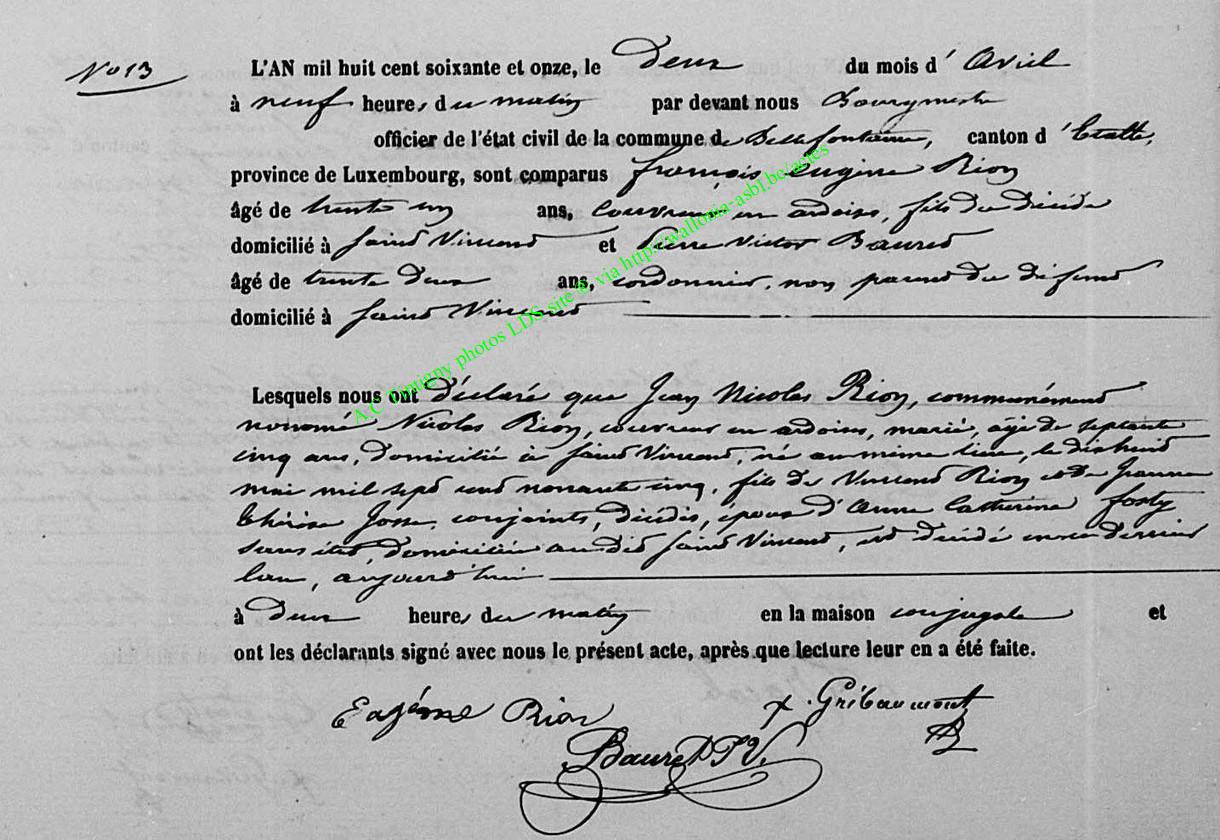 No 13
L'AN mil huit cent soixante et onze, le Deux du mois d' Avril
à neuf heures du matin par devant nous Bourgmestre
officier de l'état civil de la commune de Bellefontaine, canton d' Etalle,
province de Luxembourg, sont comparus françois Eugène Rion
âgé de trente un ans, couvreur en ardoises, fils du décédé
domicilié à Saint Vincent et Pierre Victor Bauret
âgé de trente deux ans, cordonnier, non parent du défunt
domicilié à Saint Vincent
Lesquels nous ont déclaré que Jean Nicolas Rion, communément
nommé Nicolas Rion, couvreur en ardoises, marié, âgé de septante
cinq ans, domicilié à Saint Vincent, né au même lieu, le dix huit
mai mil sept cent nonante cinq, fils de Vincent Rion et de Jeanne
Thérèse Josse, conjoints, décédés, époux d'Anne Catherine forty
sans état, domiciliée au dit Saint Vincent, est décédé en ce dernier
lieu, aujourd'hui
à Deux heures du matin en la maison conjugale et
ont les déclarants signé avec nous le présent acte, après que lecture leur en a été faite.
Eugène Rion x. Gribaumont
Bauret P V.
A.C. Tintigny photos LDS site & via http://wallonia-asbl.be/actes